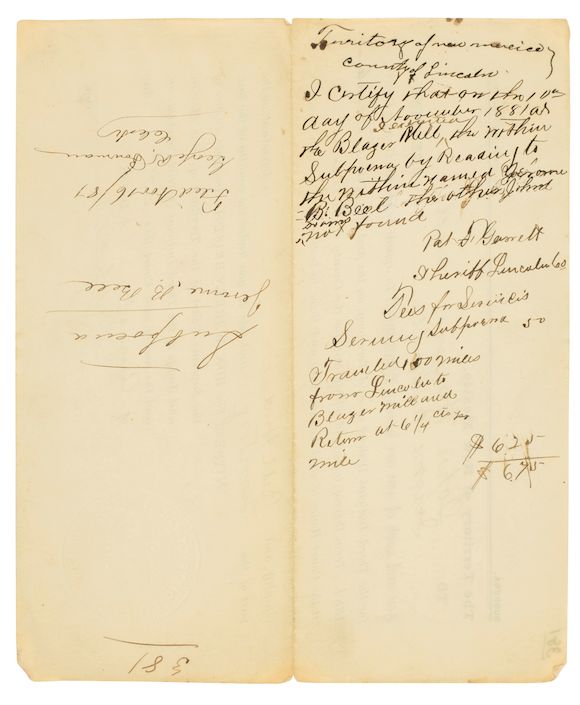 Territory of new mexico
county of Lincoln
I Certify that on the 10th
day of November 1881 at
the Blazer Mill I served the within
Subpoena by Reading to
the within named Jerome
B. Bell the other John
not found
Pat F Garrett
Sheriff Lincoln Co
Fees for Services
Serving Subpoena 50
Traveled 100 miles
from Lincoln to
Blazer mill and
Return at 6 1/4 cts per
mile
$ 6.25
$ 6.75
381
Subpoena
Jerome B. Bell
Filed Nov 16/81
George R. Bowman
Clerk
381